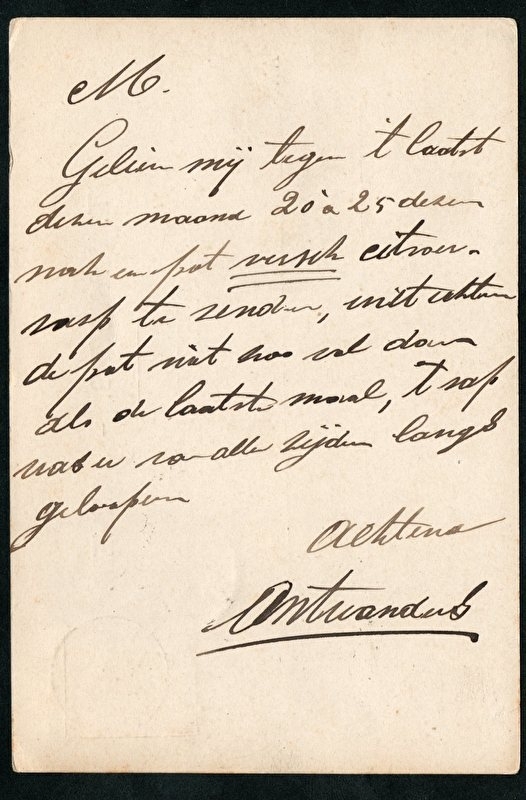 M.
Gelieve mij tegen 't laatst
dezen maand 20 à 25 dezen
noch een pot versch citroen-
rasp te zenden, echter
de pot niet zoo vol doen
als de laatste maal, 't sap
was er van alle zijden langs
geloopen
Achtend